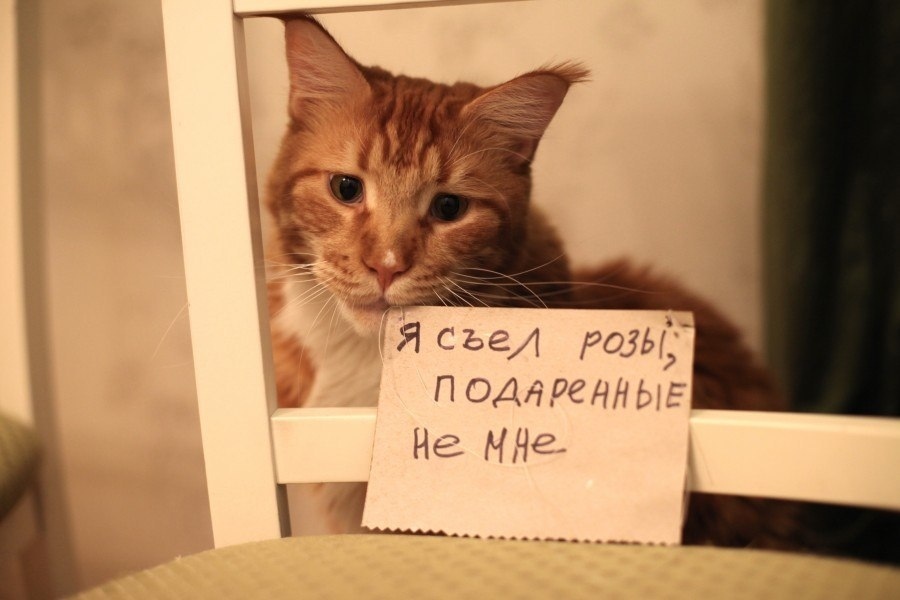 Я съел розы,
подаренные
не мне